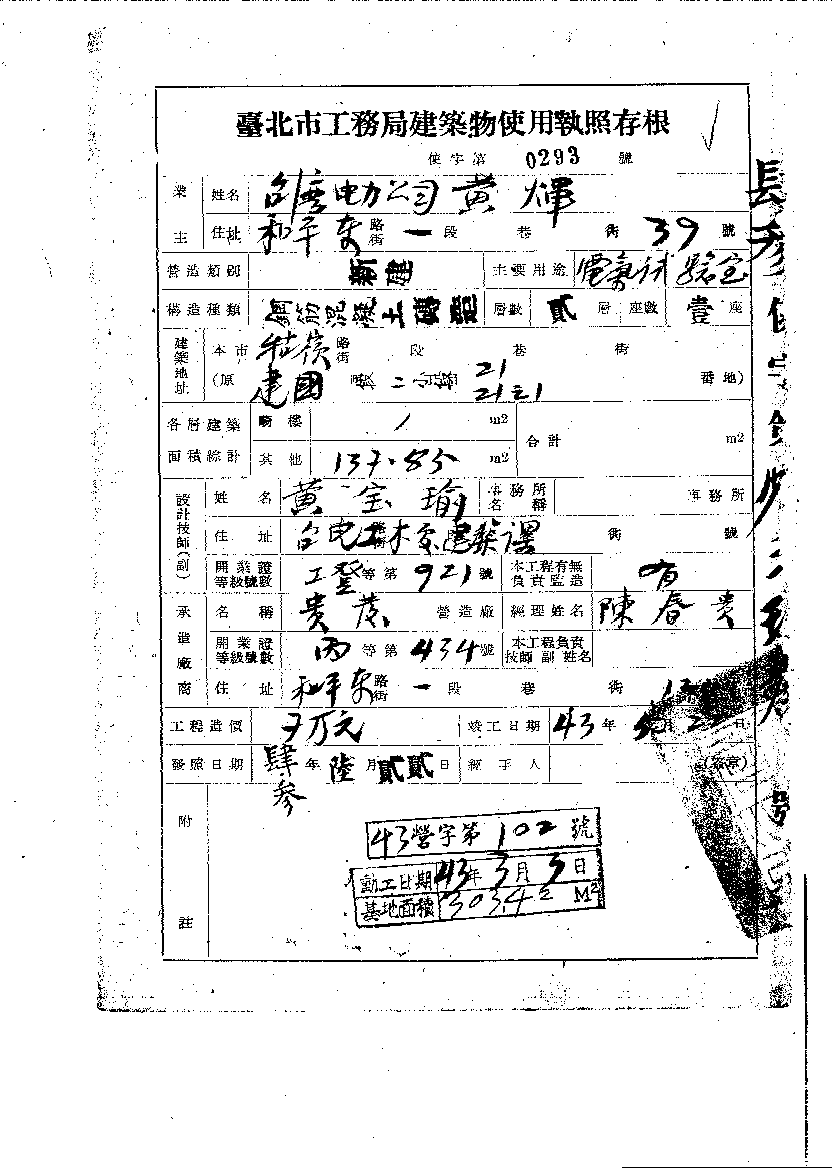 臺北市工務局建築物使用執照存根
使字第 0293 號
業主 姓名 台灣電力公司 黃煇
住址 和平東 路街 一 段 巷 街 39 號
營造類別 新建 主要用途 電氣試驗室
構造種類 鋼筋混凝土磚造 層數 貳 層 座數 壹 座
建築地址 本市 牯嶺 路街 段 巷 街
(原 建國 段 二 小段 21 21之1 番地)
各層建築面積綜計 騎樓 / m2 合計 m2
其他 137.85 m2
設計技師(副) 姓名 黃宝瑜 事務所名稱 事務所
住址 台电土木處建築課 街 號
開業證等級號數 工登 等第 921 號 本工程有無負責監造 有
承造廠商 名稱 貴茂 營造廠 經理姓名 陳春貴
開業證等級號數 丙 等第 434 號 本工程負責技師副姓名
住址 和平东 路街 一 段 巷 街
工程造價 万元 竣工日期 43 年 月 日
發照日期 肆參 年 陸 月 貳貳 日 經手人 (簽章)
附註
43營字第 102 號
動工日期 43年3月3日
基地面積 303.42 M2